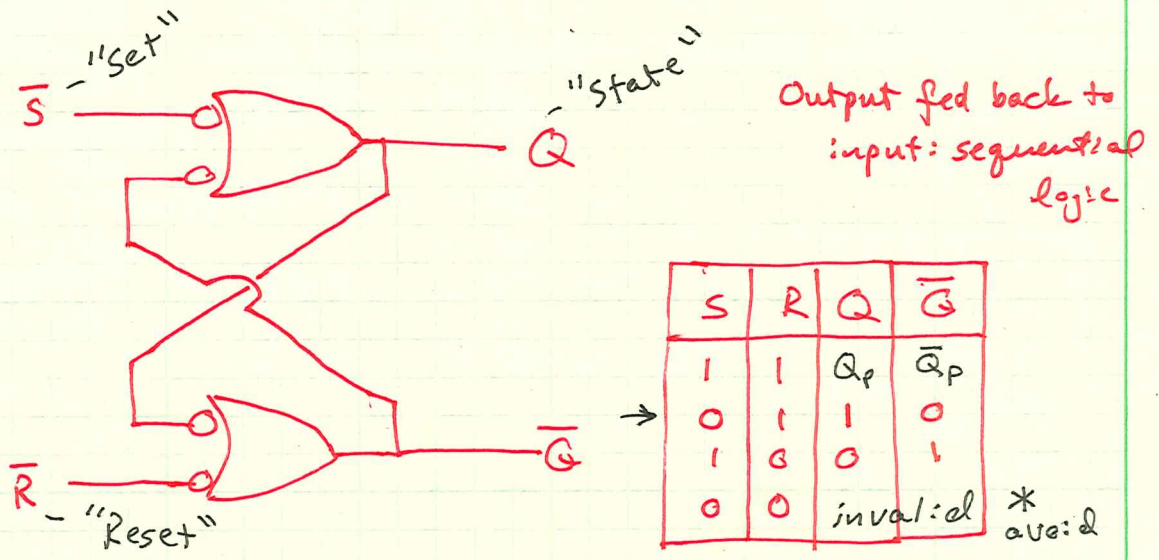 S̅ - "Set"
Q - "State"
Output fed back to
input: sequential
logic
R̅ - "Reset"
Q̅
S R Q Q̅
1 1 Qp Q̅p
→ 0 1 1 0
1 0 0 1
0 0 invalid * avoid